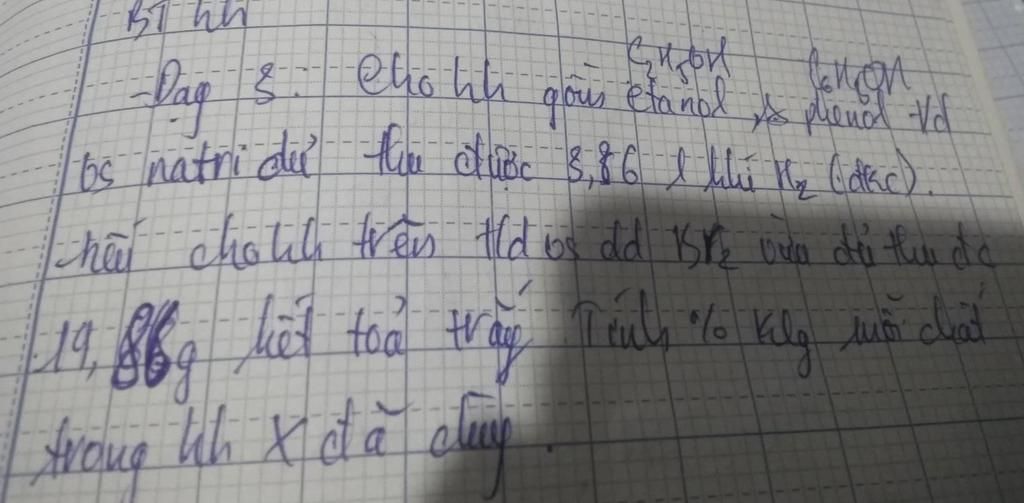 BT hh
C₂H₅OH C₆H₅OH
-Dạg 3: Cho hh gồm etanol, phenol td
vs natri dư thu được 3,86 l khí H₂ (đkc).
nếu cho hh trên td vs dd Br₂ vừa đủ thu đc
19,86g kết toả trắg Tính % klg mỗi chất
trong hh X đã dùg.